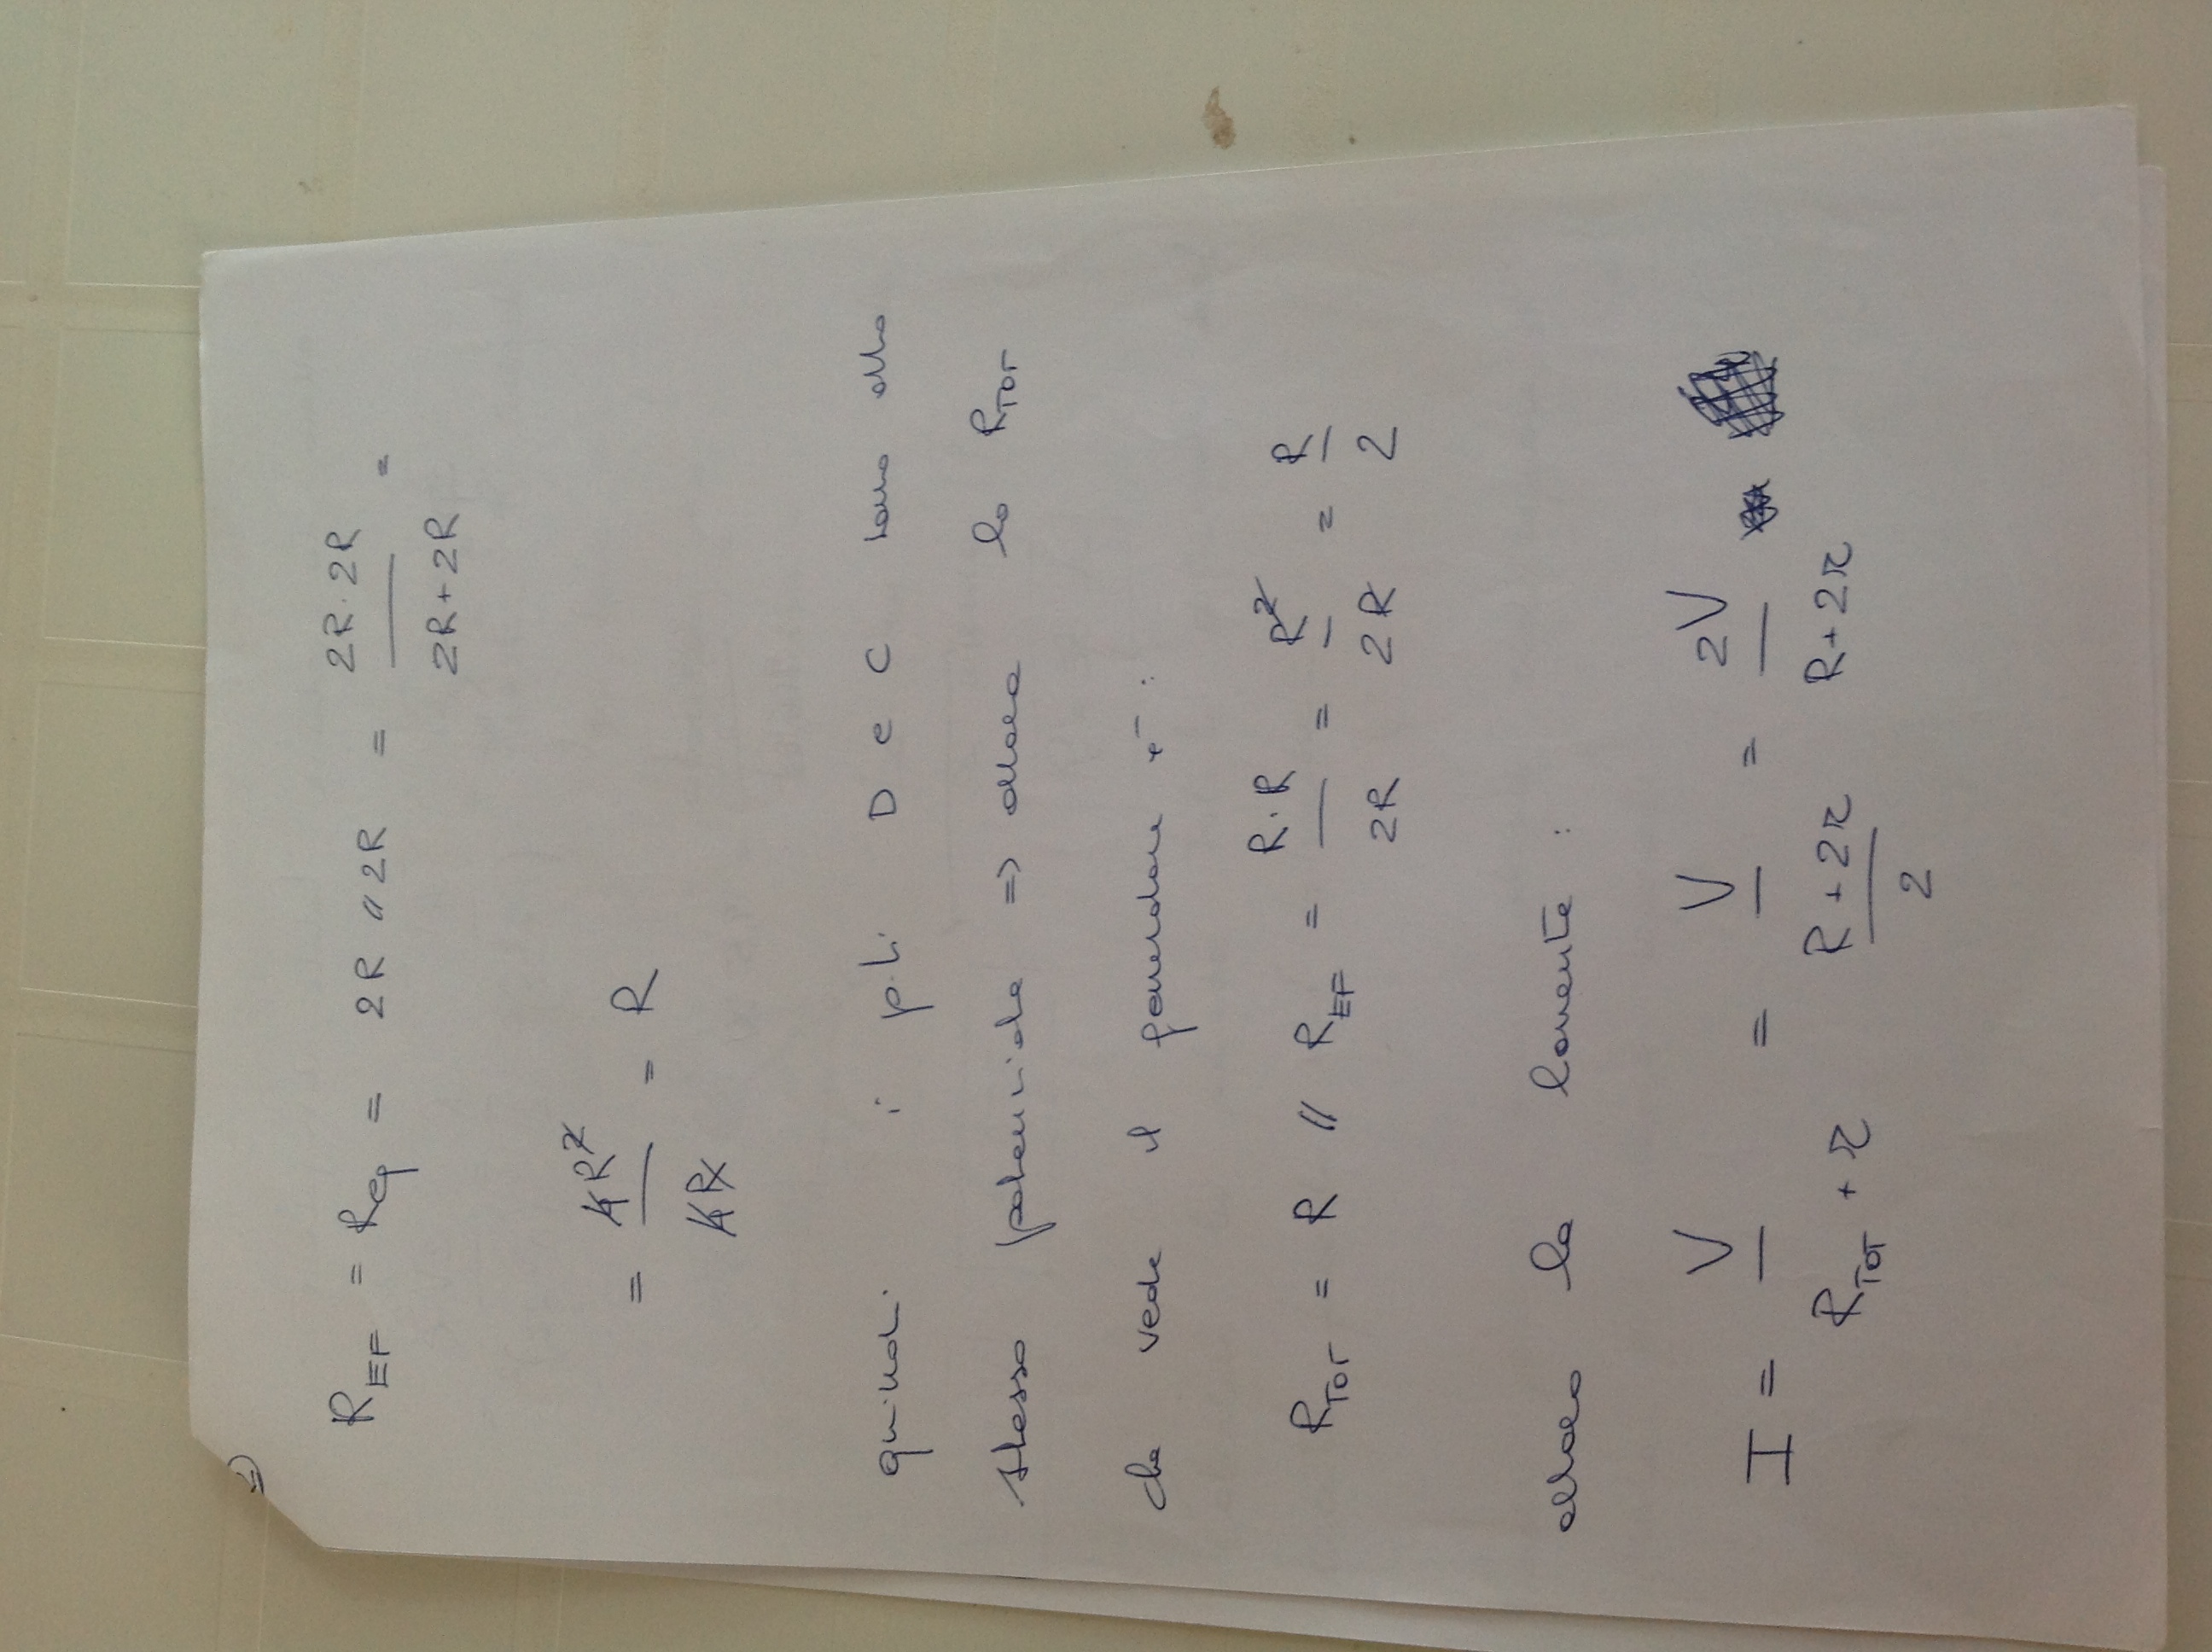 2)
R_EF = R_eq = 2R // 2R = (2R · 2R)/(2R + 2R) =
= 4R²/4R = R
quindi i p.ti D e C sono allo
stesso potenziale => allora la R_TOT
che vede il generatore è:
R_TOT = R // R_EF = (R · R)/2R = R²/2R = R/2
allora la corrente:
I = V/(R_TOT + r) = V/((R + 2r)/2) = 2V/(R + 2r)